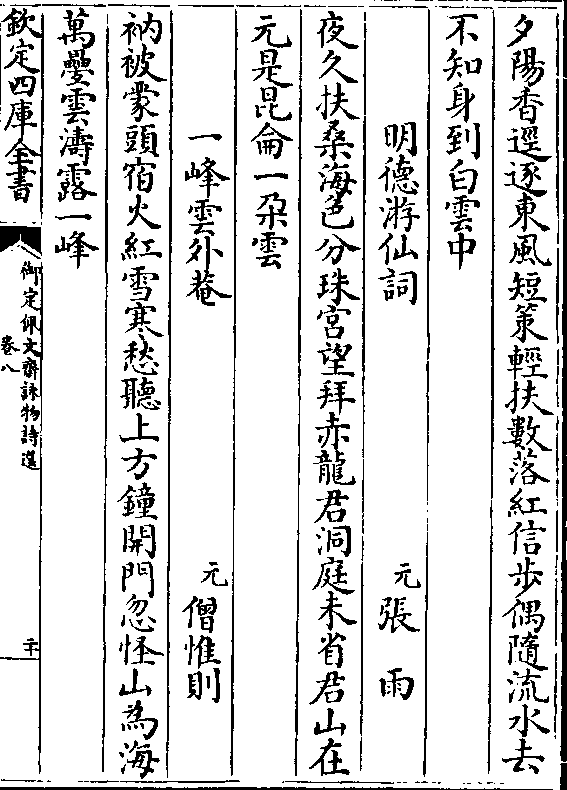 夕陽香逕逐東風短策輕扶數落紅信步偶隨流水去
不知身到白雲中
明德游仙詞
元張雨
夜久扶桑海色分珠宮望拜赤龍君洞庭未省君山在
元是昆侖一朶雲
一峰雲外菴
元僧惟則
衲被蒙頭宿火紅雪寒愁聽上方鐘開門忽怪山為海
萬疊雲濤露一峰
欽定四庫全書
御定佩文齋詠物詩選
卷八
二十